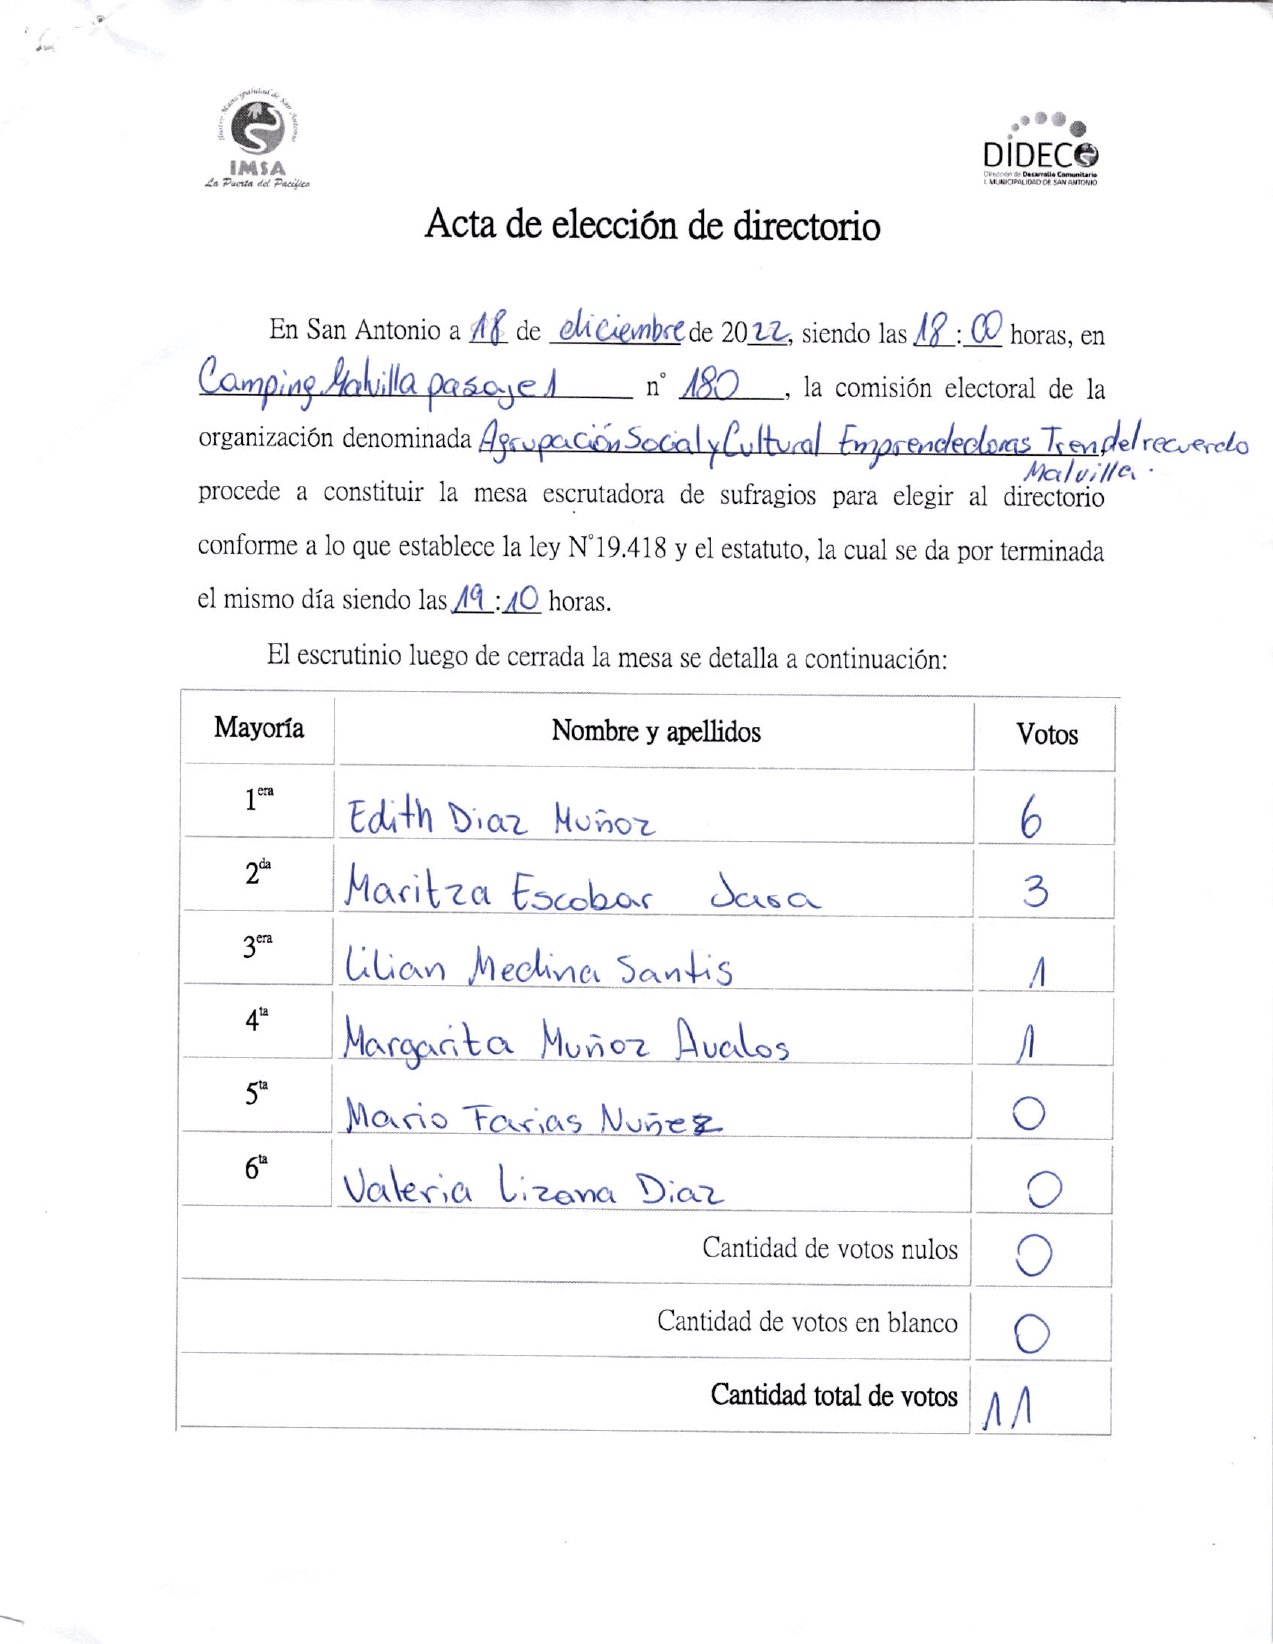 Ilustre Municipalidad de San Antonio
IMSA
La Puerta del Pacífico
DIDECO
Dirección de Desarrollo Comunitario
I. MUNICIPALIDAD DE SAN ANTONIO
Acta de elección de directorio
En San Antonio a 18 de diciembre de 2022, siendo las 18 : 00 horas, en
Camping Malvilla pasaje 1 n° 180, la comisión electoral de la
organización denominada Agrupación Social y Cultural Emprendedoras Tren del recuerdo
Malvilla.
procede a constituir la mesa escrutadora de sufragios para elegir al directorio
conforme a lo que establece la ley N°19.418 y el estatuto, la cual se da por terminada
el mismo día siendo las 19 : 10 horas.
El escrutinio luego de cerrada la mesa se detalla a continuación:
Mayoría Nombre y apellidos Votos
1era Edith Diaz Muñoz 6
2da Maritza Escobar Jara 3
3era Lilian Medina Santis 1
4ta Margarita Muñoz Avalos 1
5ta Mario Farias Nuñez 0
6ta Valeria Lizana Diaz 0
Cantidad de votos nulos 0
Cantidad de votos en blanco 0
Cantidad total de votos 11